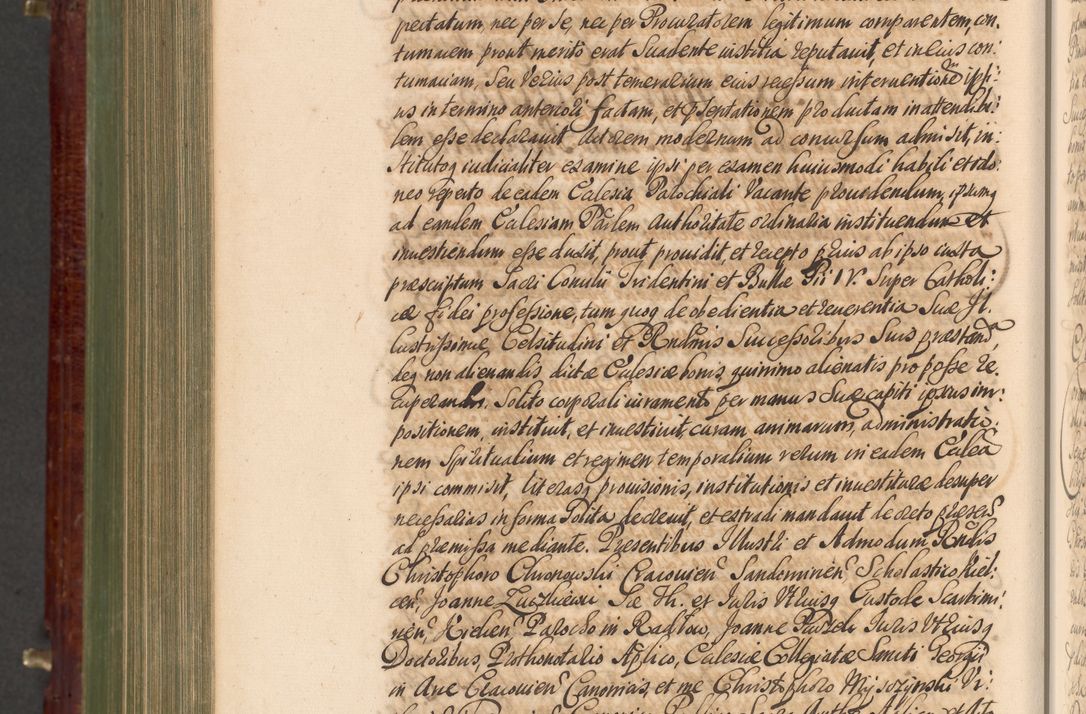 pectatum, nec per se, nec per Procuratorem legitimum comparentem, con:
tumacem prout merito erat Suadente iustitia reputauit, et in eius con:
tumaciam, Seu Verius post temerarium eius recessum interuentionem ipsi:
us in termino anteriori factam, et pñsentationem productam inattendibi:
lem esse declarauit Actorem modernum ad concursum admisit, in:
stitutoq iudicialiter examine ipsi per examen huiusmodi habili et ido:
neo reperto de eadem Ecclesia Parochiali Vacante prouidendum, ipsumq
ad eandem Ecclesiam Parlem Authoritate ordinaria instituendum et
inuestiendum esse duxit, prout prouidit, et recepto prius ab ipso iuxta
præscriptum Sacri Concilii Tridentini et Bullæ Pii IV. Super Catholi:
cæ fidei professione, tum quoq de obedientia et reuerentia Suæ Il:
lustrissimæ Celsitudini et Rndmis Successoribus Suis præstand,
deq non alienandis dictæ Ecclesiæ bonis, quinimo alienatis pro posse re:
cuperandis. Solito corporali iuramento per manus Suæ capiti ipsius im:
positionem, instituit, et inuestiuit, curam animarum, administratio:
nem Spiritualium et regimen temporalium rerum in eadem Ecclea
ipsi commisit, literasq prouisionis, institutionis et inuestituræ desuper
necessarias in forma Solita decreuit, et extradi mandauit decreto præsens
ad præmissa mediante. Præsentibus Illustri et Admodum Rndis
Christophoro Chronowski Cracouien Sandomirien Scholastico Kiel:
cen, Joanne Zuczkiewi Sæ Th. et Juris Vtriusq Custode Scarbimi:
rien, Kielcen, Parocho in Radłow, Joanne Juris Vtriusq
Doctoribus, Prothonotario Aplico, Ecclesiæ Collegiatæ Sancti Georgii
in Arce Cracouien Canonicis, et me Christophoro Mysozynski Vi: